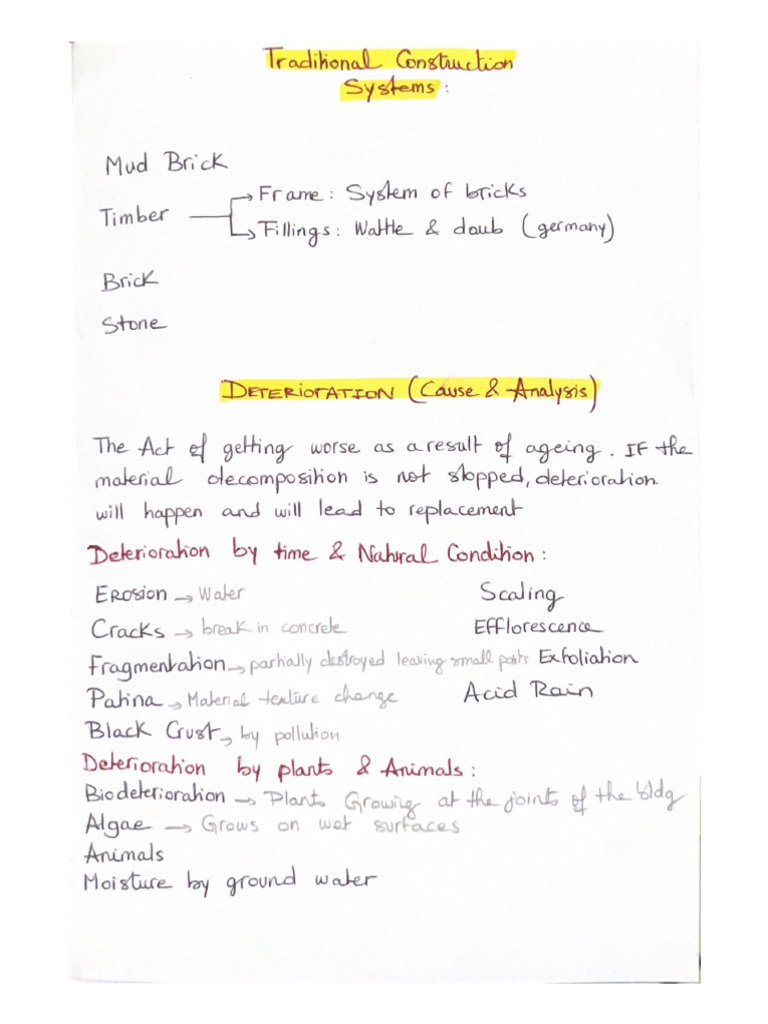 Traditional Construction
Systems:
Mud Brick
Timber
→ Frame: System of bricks
→ Fillings: Wattle & daub (germany)
Brick
Stone
DETERIORATION (Cause & Analysis)
The Act of getting worse as a result of ageing. IF the
material decomposition is not stopped, deterioration
will happen and will lead to replacement
Deterioration by time & Natural Condition:
Erosion → Water
Scaling
Cracks → break in concrete
Efflorescence
Fragmentation → partially destroyed leaving small parts
Exfoliation
Patina → Material texture change
Acid Rain
Black Crust → by pollution
Deterioration by plants & Animals:
Biodeterioration → Plants Growing at the joints of the bldg
Algae → Grows on wet surfaces
Animals
Moisture by ground water